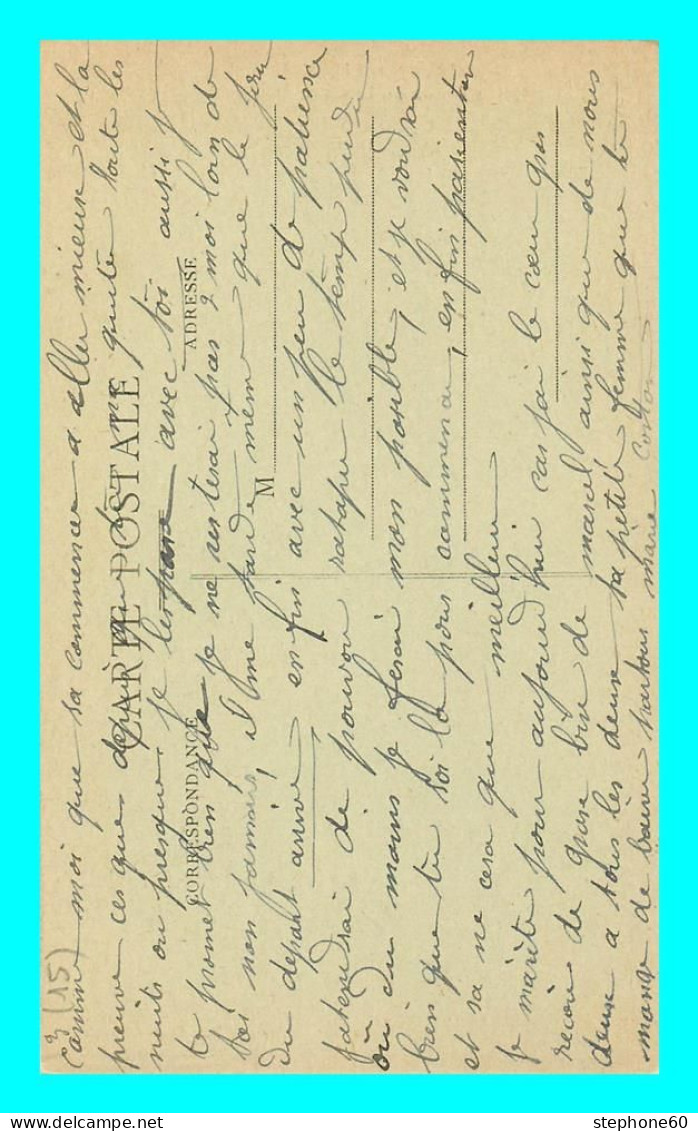 3 (15)
CARTE POSTALE
CORRESPONDANCE
ADRESSE
M
comme moi que sa commencer a aller mieux et la
preuve ces que depuis qu tu me quitte toute les
nuits ou presque je les passe avec toi aussi je
te promet bien que je ne resterai pas 2 moi loin de
toi non jamais, il me tarde meme que le jour
du depart arrive enfin avec un peu de patience
jatendrai de pouvoir rataper le temp perdu
ou du moins je ferai mon posible, et je voudrai
bien que tu soi la pour commencer, enfin pasienton
et sa ne cera que meilleur
je m'arete pour aujourd'hui car jai le cœur gros
recoi de grose bise de marcel ainsi que de nous
deux a tous les deux ta petite femme que te
mange de baiser partous marie
stephone60